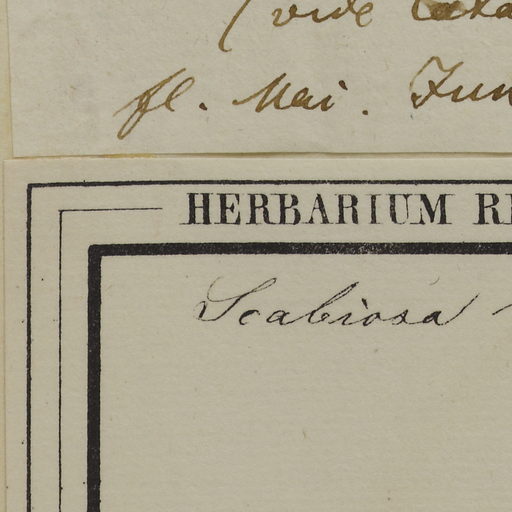 (vide
fl. Mai. Jun
HERBARIUM R
Scabiosa